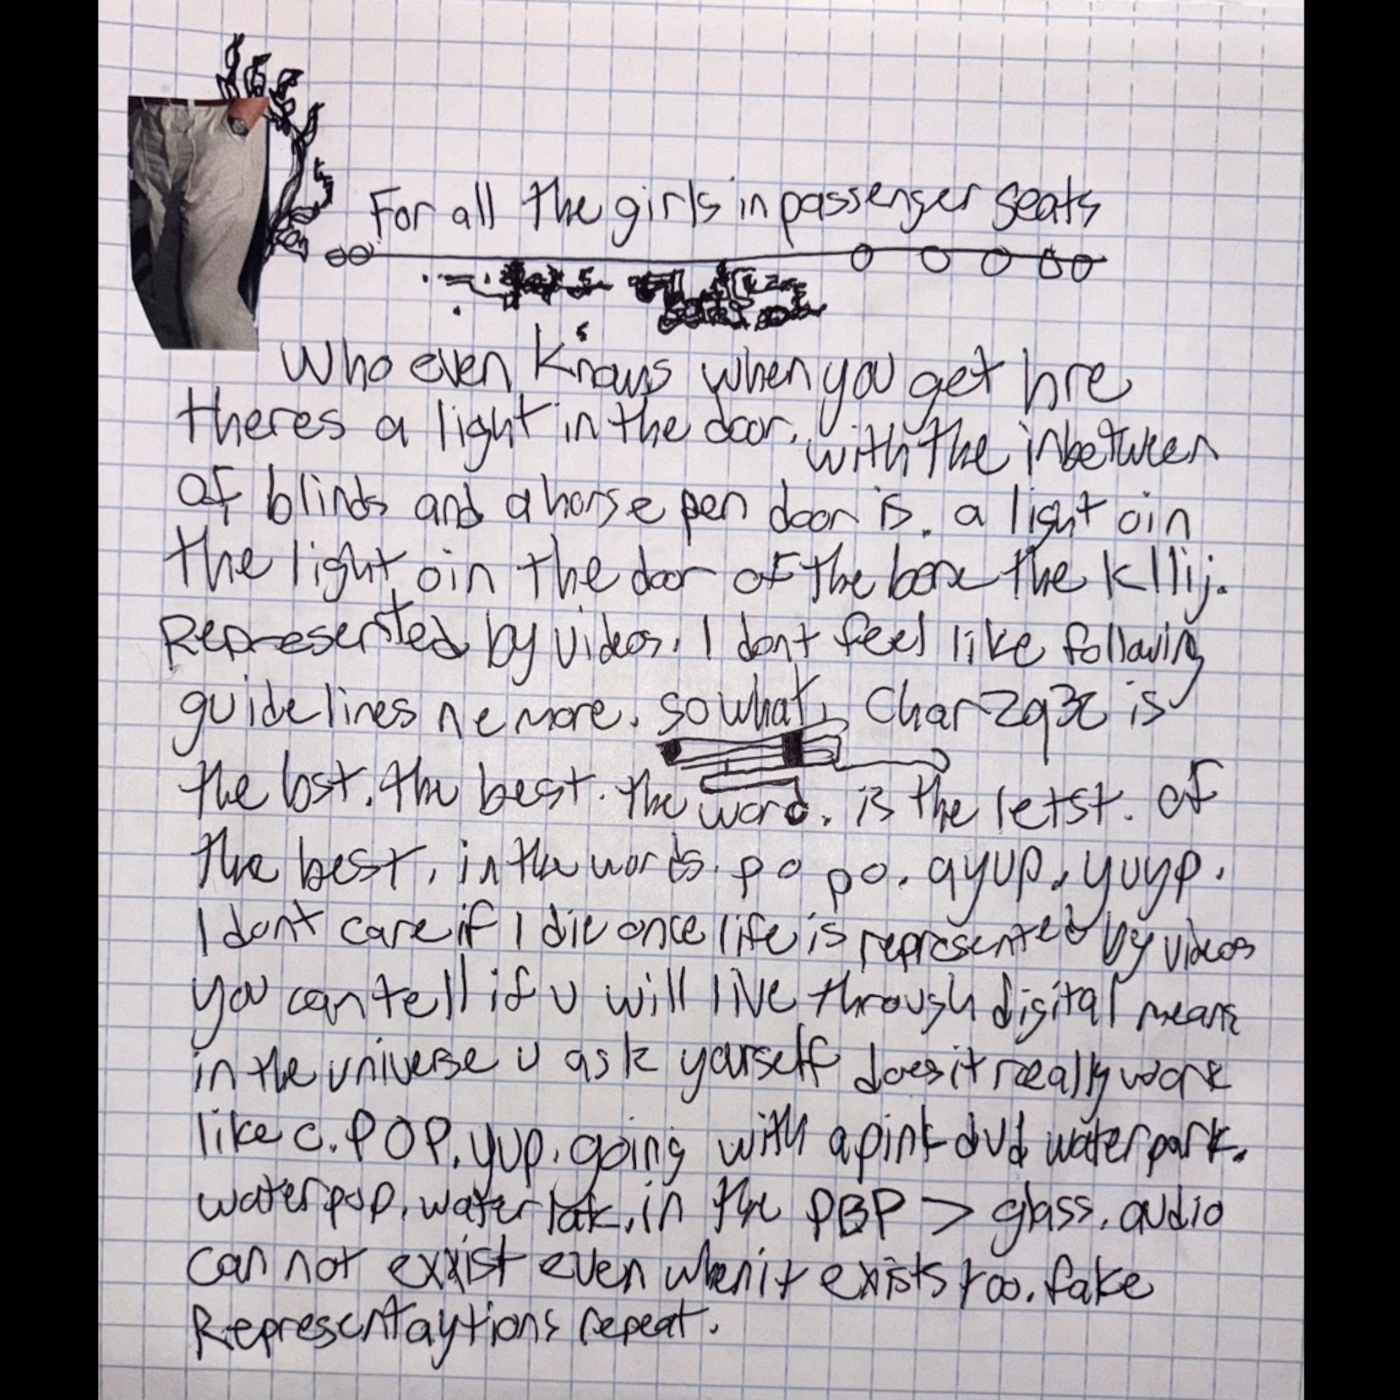 For all the girls in passenger seats
Who even knows when you get hre
theres a light in the door. with the inbetween
of blinds and a horse pen door is. a light oin
the light oin the door of the bone the kllij.
Represented by videos. I dont feel like following
guidelines nemore. so what, Char2q3c is
the lost. the best. the word. is the letst. of
the best, in the words. po po. ayup. yuyp.
I dont care if I die once life is represented by videos
you can tell if u will live through digital means
in the universe u ask yourself does it really work
like c. POP. yup. going with a pink dvd waterpark.
waterpop. water in the PBP > glass. audio
can not exxist even when it exists too. fake
Representaytions repeat.